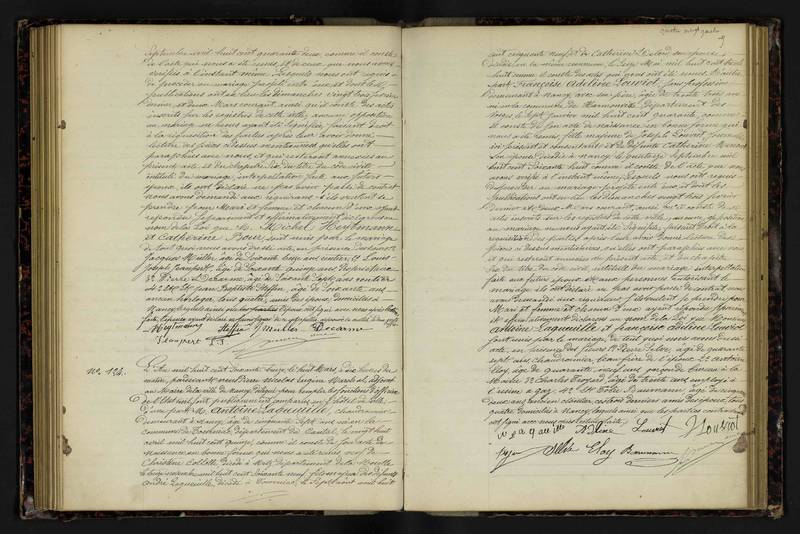 Septembre mil huit cent quarante deux, comme il conste
de l'acte qui nous a été remis, et de ceux que nous avons
vérifiés à l'instant même. Lesquels nous ont requis
de procéder au mariage projeté entre eux et dont les
publications ont eu lieu les dimanches vingt trois février
dernier, et deux Mars courant, ainsi qu'il conste des actes
inscrits sur les registres de cette ville, aucune opposition
au mariage ne nous ayant été signifiée, faisant droit
à la réquisition des parties après leur avoir donné
lecture des pièces ci-dessus mentionnées qu'elles ont
paraphées avec nous, et qui resteront annexées au
présent acte, et du chapitre six du titre du code civil
intitulé du mariage, interpellation faite aux futurs
époux, ils ont déclaré ne pas avoir passé de contrat
nous avons demandé aux requérants s'ils veulent se
prendre pour Mari et femme, et chacun d'eux ayant
répondu séparément et affirmativement déclarons au
nom de la Loi que M. Michel Heytmann
et Catherine Bour sont unis par le mariage
de tout quoi avons dressé acte, en présence de
Jacques Müller, âgé de soixante ans, rentier, Louis
Joseph Jeanpert, âgé de soixante quinze ans, propriétaire
Decarme, âgé de soixante sept ans, rentier
et Jean Baptiste Steffen, âgé de soixante ans
ancien horloger, tous quatre, amis des époux, domiciliés à
Nancy, lesquels ainsi que les parties ont signé avec nous après lecture
faite
Heytmann Steffen J Muller Decarme
Jeanpert
No. 124.
L'an mil huit cent soixante treize, le huit Mars, à dix heures du
matin, pardevant nous Pierre Nicolas Eugène Marchal, adjoint
au Maire de la ville de Nancy, délégué pour remplir les fonctions d'officier
de l'État civil, sont publiquement comparus en l'hôtel de ville
D'une part M. Antoine Laqueuille, chaudronnier
demeurant à Nancy, âgé de cinquante sept ans, né en la
commune de département du Cantal, le vingt huit
avril mil huit cent quinze, comme il conste de son acte de
naissance en bonne forme qui nous a été remis, veuf de
Christine Collotte, décédée à Metz département de la Moselle
le novembre mil huit cent soixante neuf, fils majeur de défunts
André Laqueuille, décédé à le sept août mil huit
quatre vingt quatre
cent cinquante neuf, et de Catherine son épouse
décédée en la même commune, le seize Mai mil huit cent
huit comme il conste des actes qui nous ont été remis. D'autre
part Françoise Adeline Louviot, sans profession
demeurant à Nancy avec son père, âgée de trente trois ans
née en la commune de Département des
Vosges, le sept janvier mil huit cent quarante, comme
il conste de son acte de naissance en bonne forme qui
nous a été remis, fille majeure de Joseph Louviot, journalier
ici présent et consentant et de défunte Catherine
son épouse, décédée à Nancy le quatorze septembre mil
huit cent soixante huit comme il conste de l'acte que nous
avons vérifié à l'instant même. Lesquels nous ont requis
de procéder au mariage projeté entre eux et dont les
publications ont eu lieu les dimanches vingt trois février
dernier et deux Mars courant ainsi qu'il conste des
actes inscrits sur les registres de cette ville, aucune opposition
au mariage ne nous ayant été signifiée, faisant droit à la
réquisition des parties, après leur avoir donné lecture des
pièces ci-dessus mentionnées, qu'elles ont paraphées avec nous
et qui resteront annexées au présent acte, et du chapitre
six du titre du code civil, intitulé du mariage, interpellation
faite aux futurs époux et aux personnes autorisant le
mariage, ils ont déclaré ne pas avoir passé de contrat, nous
avons demandé aux requérants s'ils veulent se prendre pour
Mari et femme, et chacun d'eux ayant répondu séparément
et affirmativement déclarons au nom de la Loi que M.
Antoine Laqueuille et Françoise Adeline Louviot
sont unis par le mariage, de tout quoi avons dressé
acte, en présence des sieurs Pierre âgé de quarante
sept ans, chaudronnier, beau frère de l'époux, Antoine
Eloy, âgé de quarante neuf ans, garçon de bureau à la
Mairie, Charles âgé de trente ans, employé à
l'usine à gaz, et Baumann, âgé de cinquante
deux ans, ancien ces trois derniers amis des époux, tous
quatre domiciliés à Nancy, lesquels ainsi que les parties contractantes
ont signé avec nous après lecture faite.
Laqueuille Adline Louviot J Louviot
Eloy Baumann